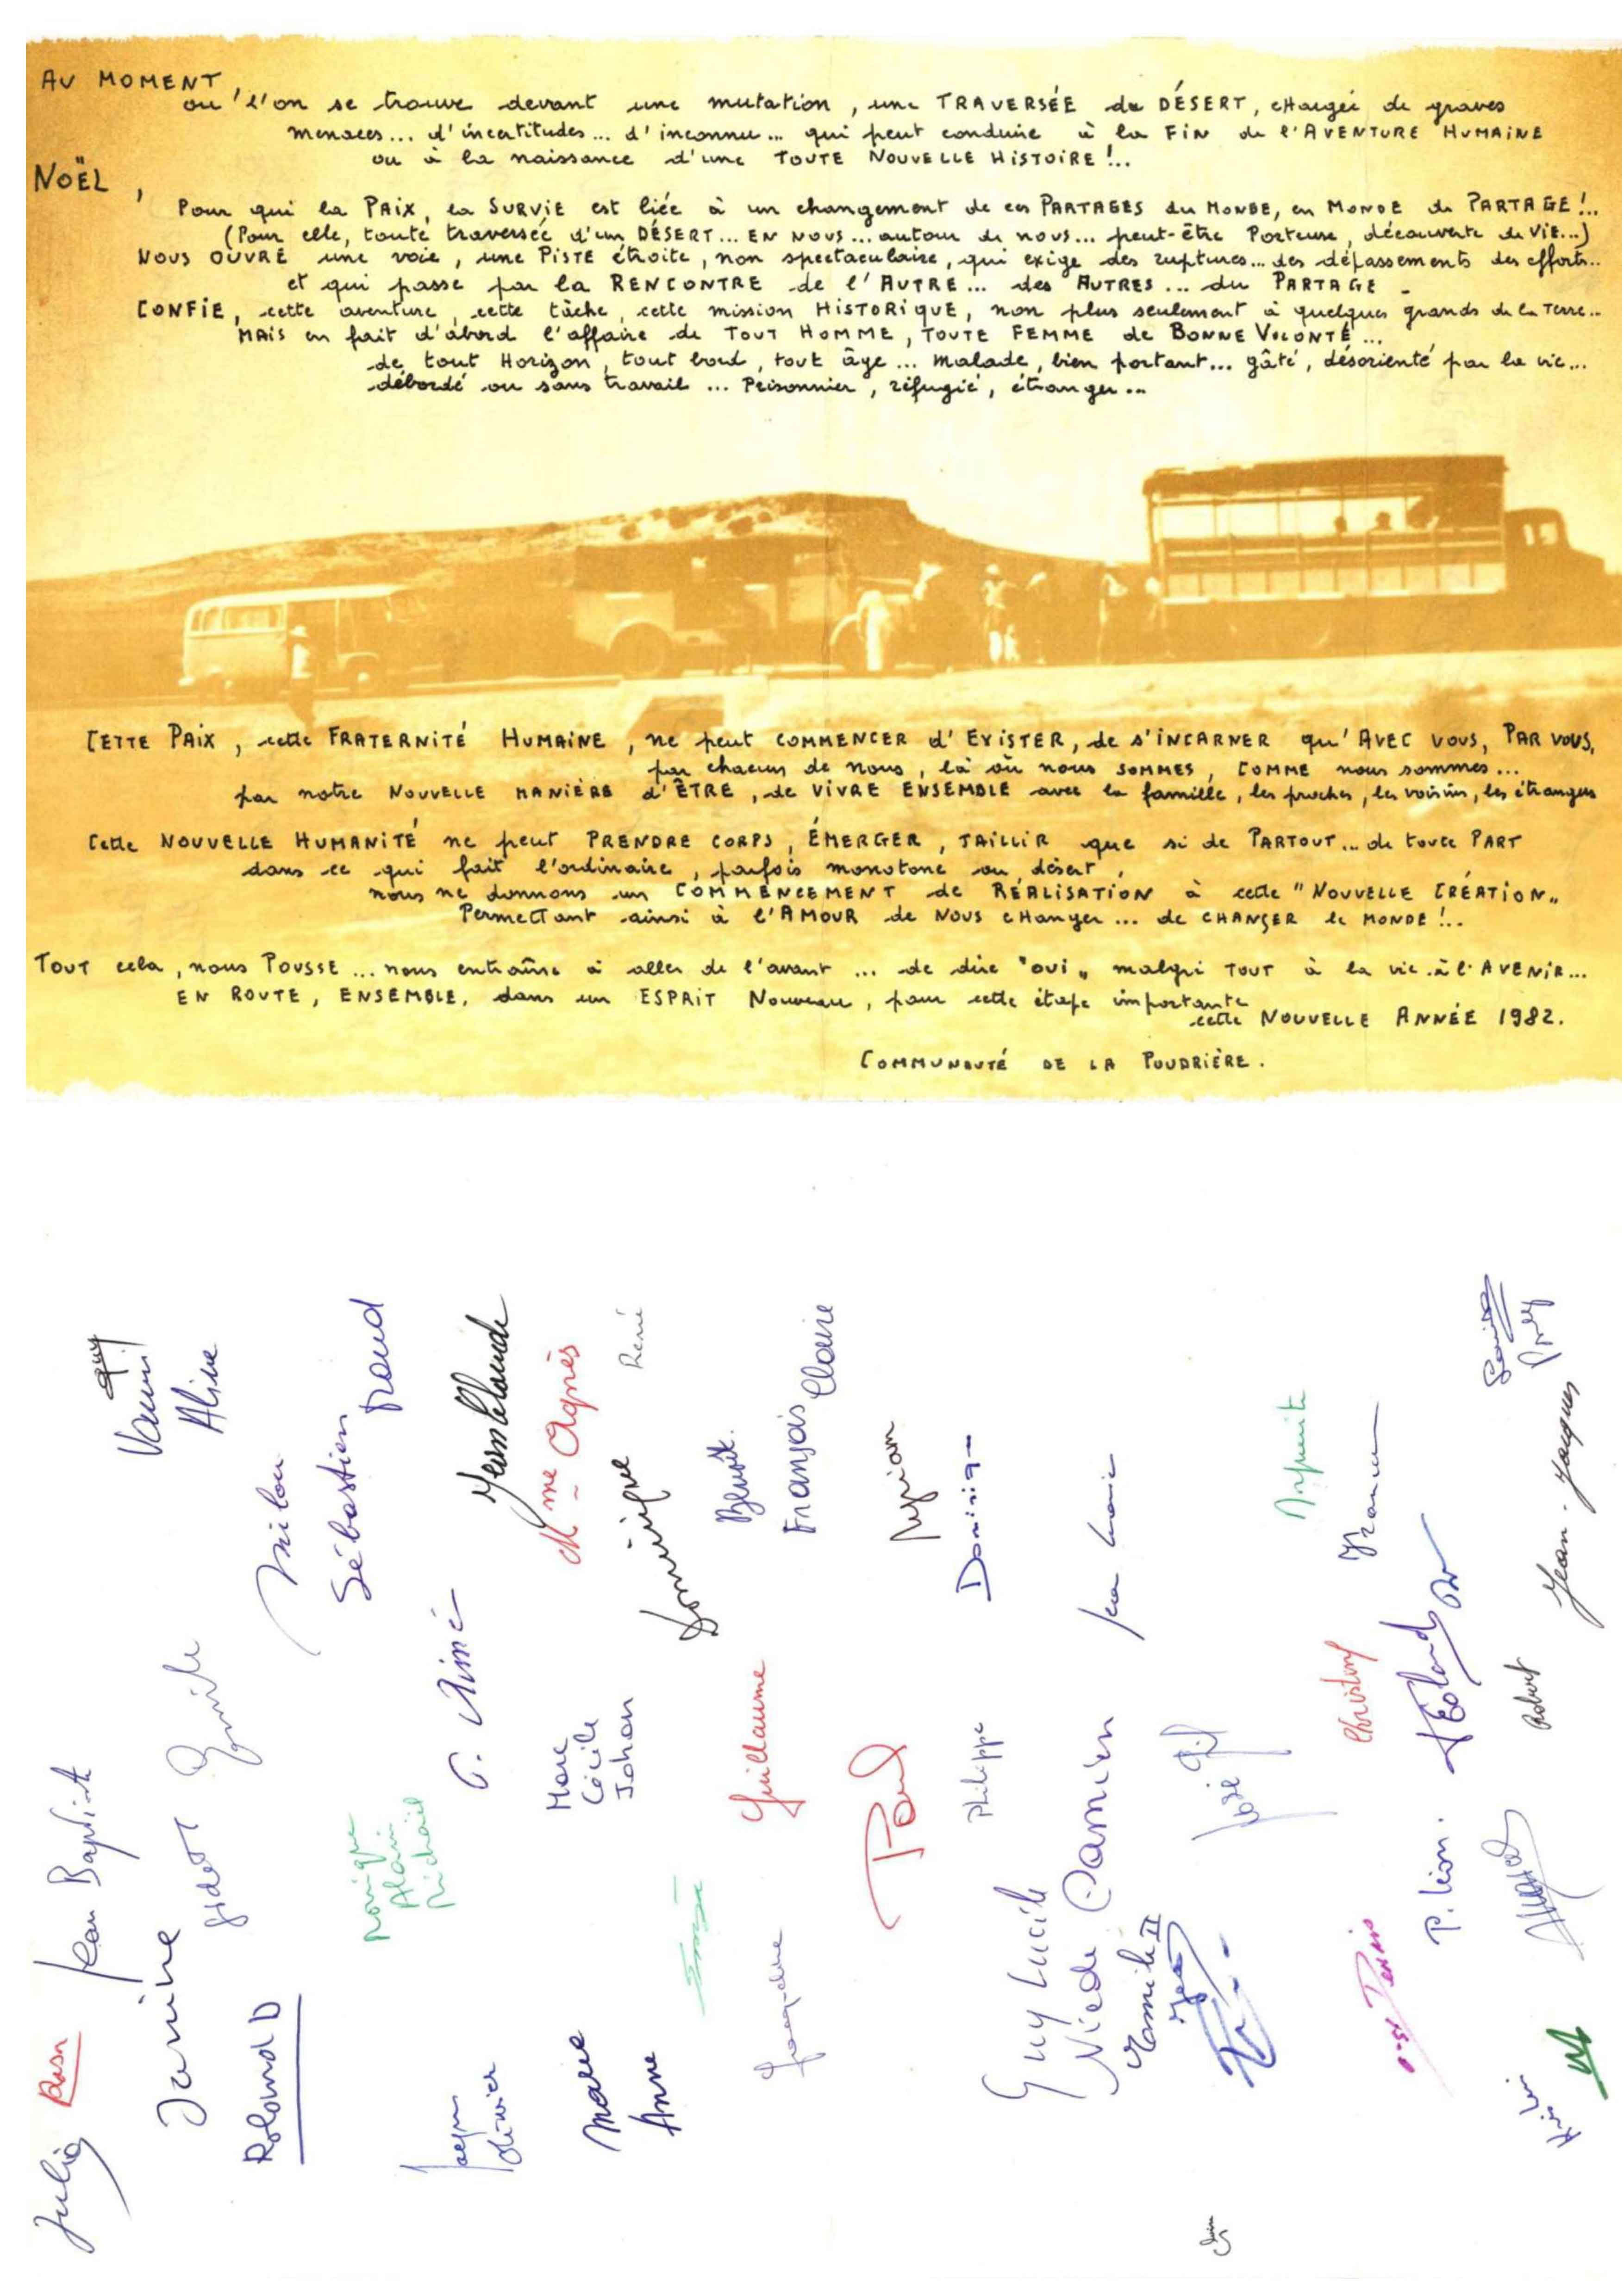 AU MOMENT,
ou l'on se trouve devant une mutation, une TRAVERSÉE du DÉSERT, cHargée de graves
menaces... d'incertitudes... d'inconnu... qui peut conduire à la FiN de l'AVENTURE HUMAiNE
ou à la naissance d'une TOUTE NOUVELLE HiSTOiRE !..
NOËL,
Pour qui la PAiX, la SURViE est liée à un changement de ces PARTAGES du MONDE, en MONDE de PARTAGE !..
(Pour elle, toute traversée d'un DÉSERT... EN NOUS... autour de nous... peut-être Porteuse, découverte de ViE...)
NOUS OUVRE une voie, une PiSTE étroite, non spectaculaire, qui exige des ruptures... des dépassements des efforts..
et qui passe par la RENCONTRE de l'AUTRE... des AUTRES... du PARTAGE -
CONFiE, cette aventure, cette tâche, cette mission HiSTORiQUE, non plus seulement à quelques grands de la Terre..
MAiS en fait d'abord l'affaire de TOUT HOMME, TOUTE FEMME de BONNE VOLONTÉ...
de tout Horizon, tout bord, tout âge... malade, bien portant... gâté, désorienté par la vie...
débordé ou sans travail... Prisonnier, réfugié, étranger...
CETTE PAiX, cette FRATERNiTÉ HUMAiNE, ne peut COMMENCER d'EXiSTER, de s'iNCARNER qu'AVEC VOUS, PAR VOUS,
par chacun de nous, là où nous SOMMES, COMME nous sommes...
par notre NOUVELLE MANiÈRE d'ÊTRE, de ViVRE ENSEMBLE avec la famille, les proches, les voisins, les étrangers
Cette NOUVELLE HUMANiTÉ ne peut PRENDRE CORPS, ÉMERGER, JAiLLiR que si de PARTOUT... de toute PART
dans ce qui fait l'ordinaire, parfois monotone ou désert,
nous ne donnons un COMMENCEMENT de RÉALiSATiON à cette "NOUVELLE CRÉATiON"
Permettant ainsi à l'AMOUR de NOUS cHanger... de CHANGER le MONDE !..
TOUT cela, nous POUSSE... nous entraîne à aller de l'avant... de dire "oui" malgré TOUT à la vie.. à l'AVENiR...
EN ROUTE, ENSEMBLE, dans un ESPRiT Nouveau, pour cette étape importante
cette NOUVELLE ANNÉE 1982.
COMMUNAUTÉ DE LA POUDRiÈRE.
guy
Aline
Sébastien
Jean Claude
Mme Agnès
René
Dominique
Benoît.
François Claire
Jean Marie
Jean-Jacques
Aimé
Marc
Cécile
Johan
Guillaume
Paul
Philippe
Damien
José
Robert
P. Léon.
Jean Baptiste
Janine
Roland D
Monique
Alain
Michaël
Marie
Anne
Jacqueline
Guy Lucile
Olivier
Julia